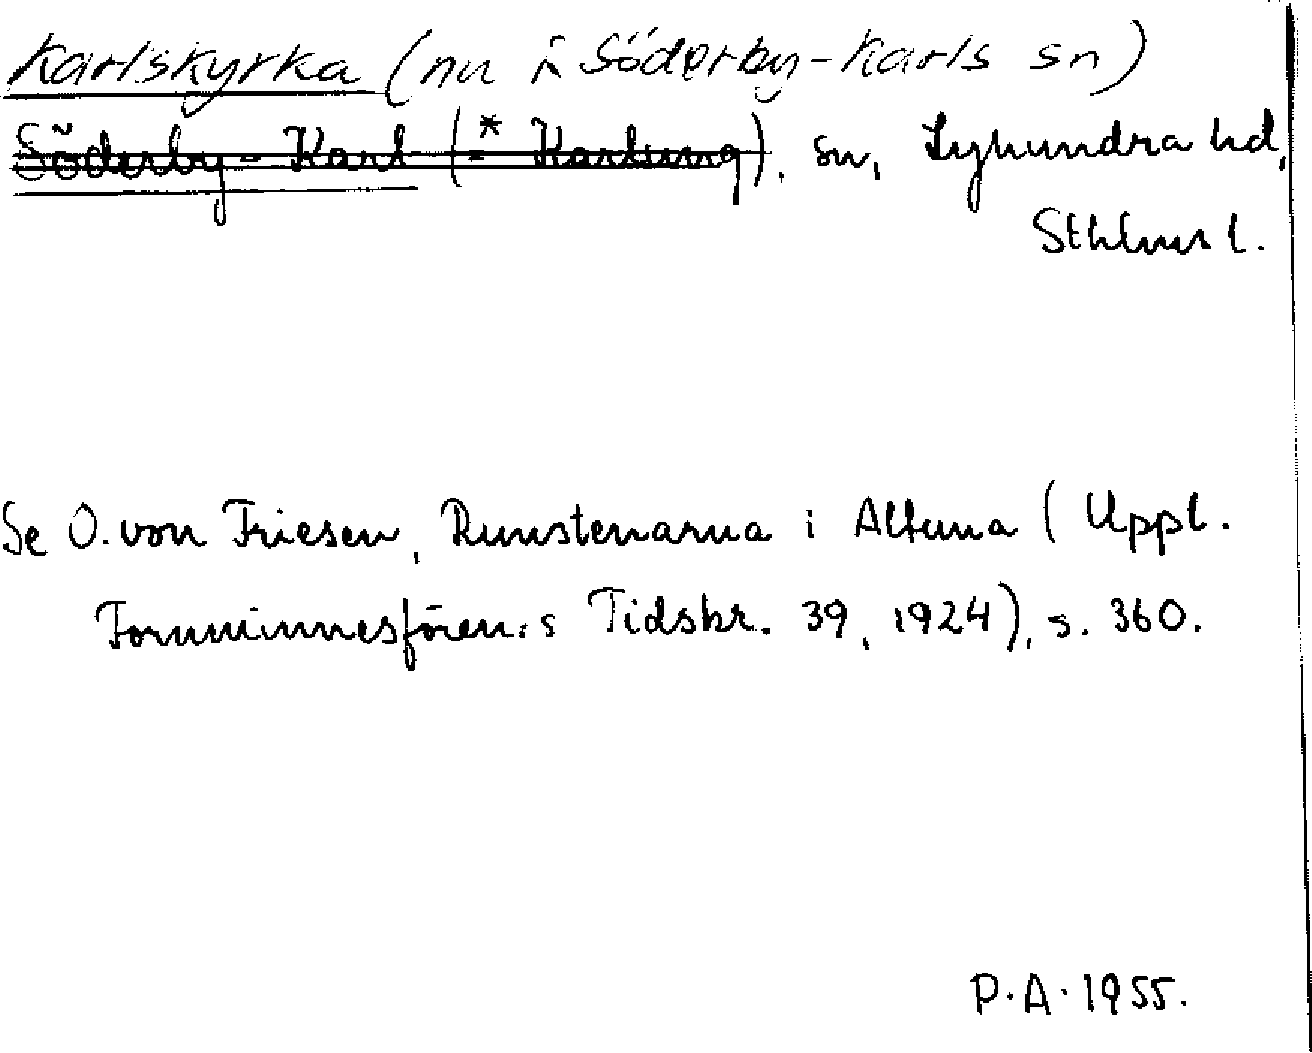 Karlskyrka (nu i Söderby-Karls sn)
Söderby-Karl (*Karlung), sn, Lyhundra hd,
Sthlms l.
Se O. von Friesen, Runstenarna i Altuna (Uppl.
Fornminnesfören:s Tidskr. 39, 1924), s. 360.
P.A. 1955.